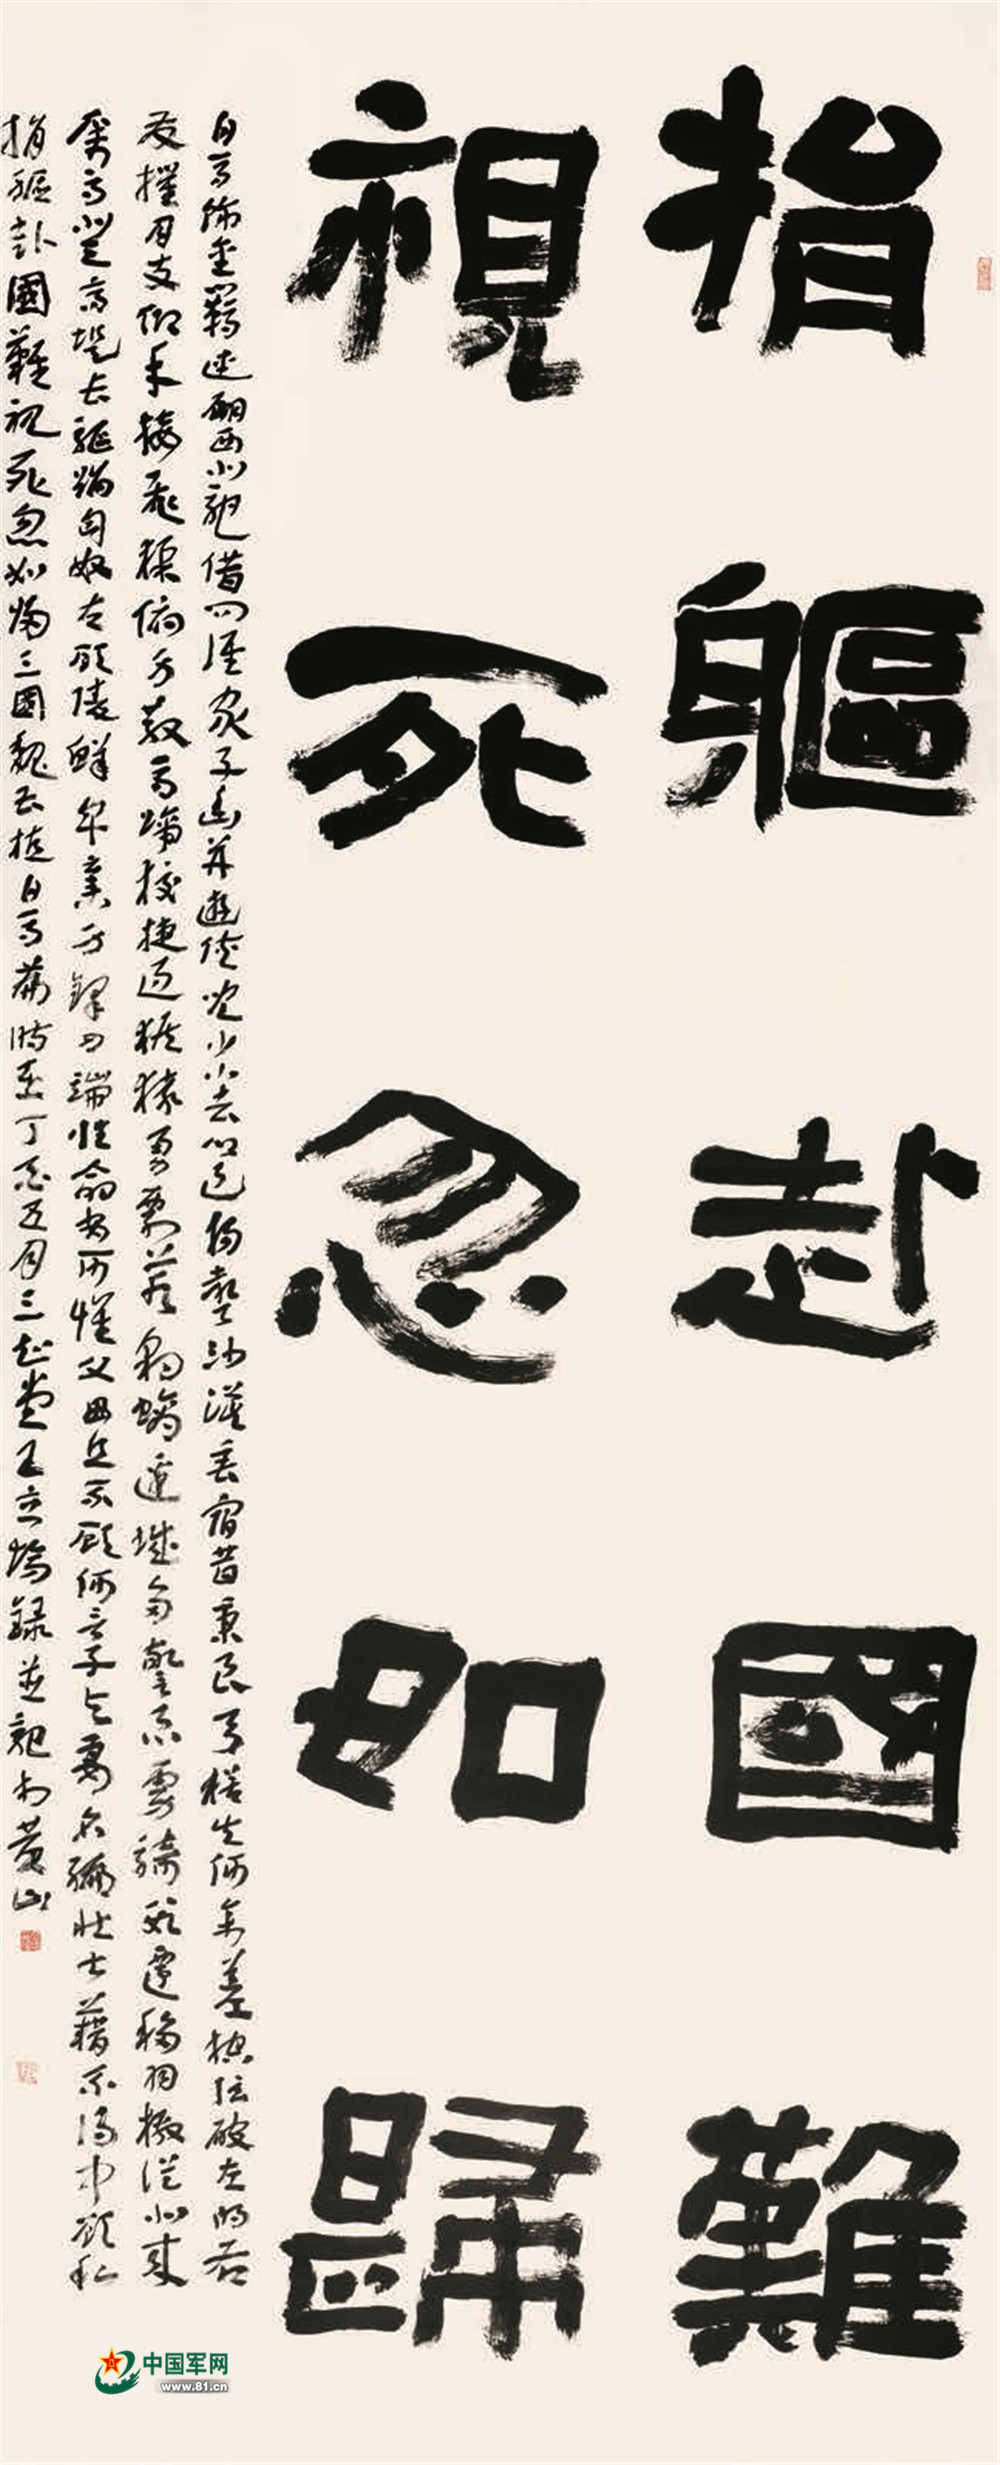 捐軀赴國難
視死忽如歸
白馬飾金羈連翩西北馳借問誰家子幽并遊俠兒少小去鄉邑揚聲沙漠垂宿昔秉良弓楛矢何參差控弦破左的右
發摧月支仰手接飛猱俯身散馬蹄狡捷過猴猿勇剽若豹螭邊城多警急虜騎數遷移羽檄從北來
厲馬登高堤長驅蹈匈奴左顧陵鮮卑棄身鋒刃端性命安可懷父母且不顧何言子與妻名編壯士籍不得中顧私
捐軀赴國難視死忽如歸三國魏曹植白馬篇時在丁酉五月三堂王立錄並記於黃山
中国军网
www.81.cn